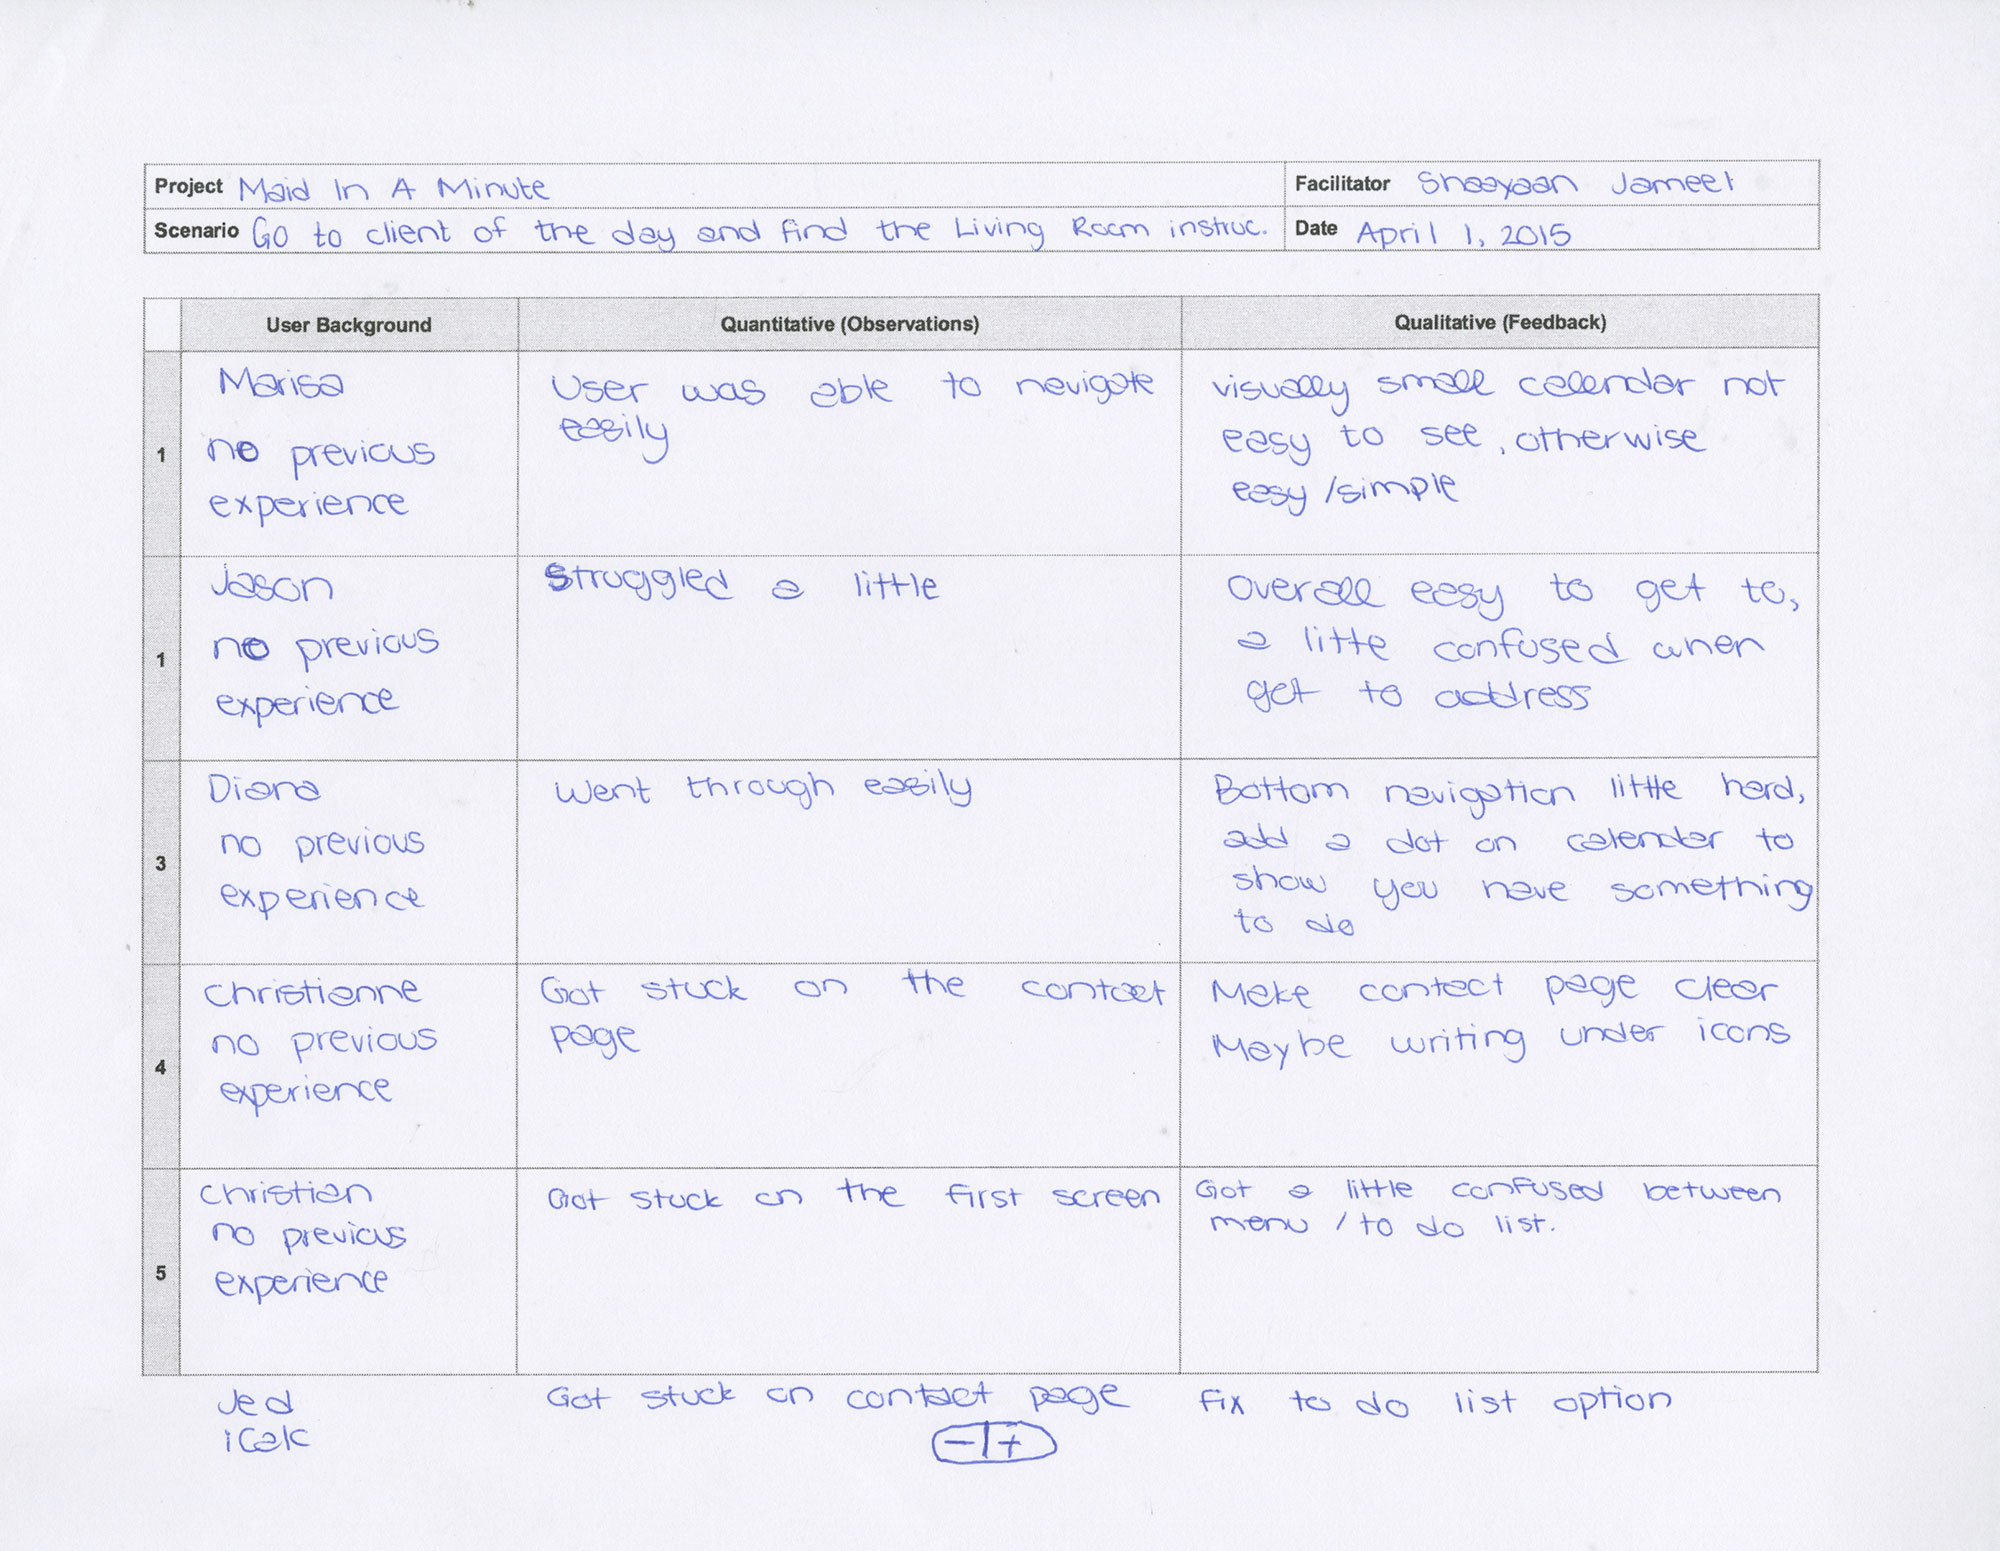 Project Maid In A Minute
Facilitator Shaayaan Jameel
Scenario Go to client of the day and find the Living Room instruc.
Date April 1, 2015
User Background
Quantitative (Observations)
Qualitative (Feedback)
1
Marisa
no previous
experience
User was able to navigate
easily
visually small calendar not
easy to see, otherwise
easy / simple
1
Jason
no previous
experience
Struggled a little
Overall easy to get to,
a litte confused when
get to address
3
Diana
no previous
experience
Went through easily
Bottom navigation little hard,
add a dot on calender to
show you have something
to do
4
Christienne
no previous
experience
Got stuck on the contact
page
Make contact page clear
Maybe writing under icons
5
Christian
no previous
experience
Got stuck on the first screen
Got a little confused between
menu / to do list.
Jed
iCalc
Got stuck on contact page
- | +
fix to do list option